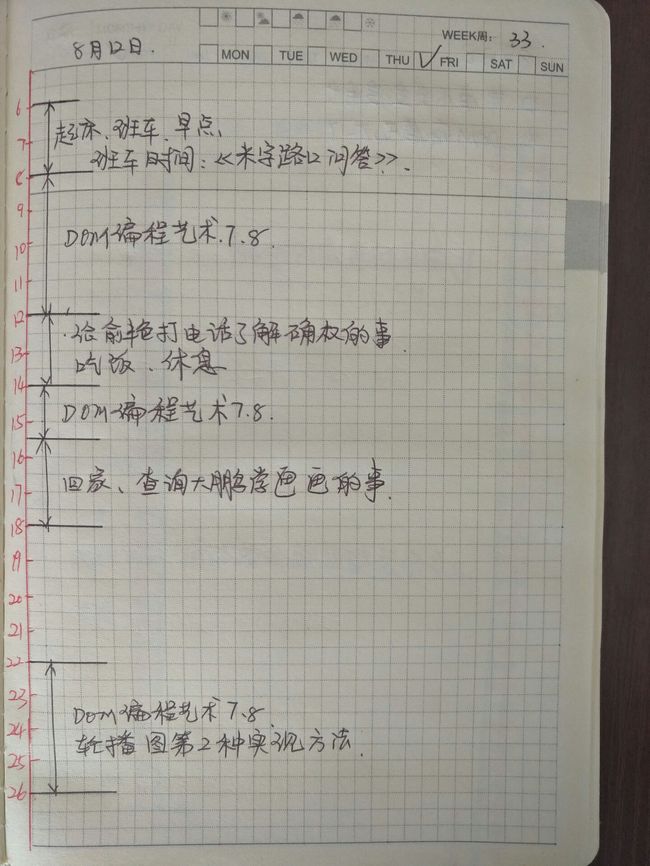 8月12日.
WEEK周: 33.
MON TUE WED THU FRI SAT SUN
6
起床、班车、早点、
7
班车时间:《米字路口问答》.
8
9
DOM编程艺术.7.8.
10
11
12
·给俞艳打电话了解确权的事.
13
吃饭、休息
14
DOM编程艺术7.8.
15
16
回家、查询大鹏学画画的事.
17
18
19
20
21
22
23
DOM编程艺术7.8.
24
轮播图第2种实现方法.
25
26